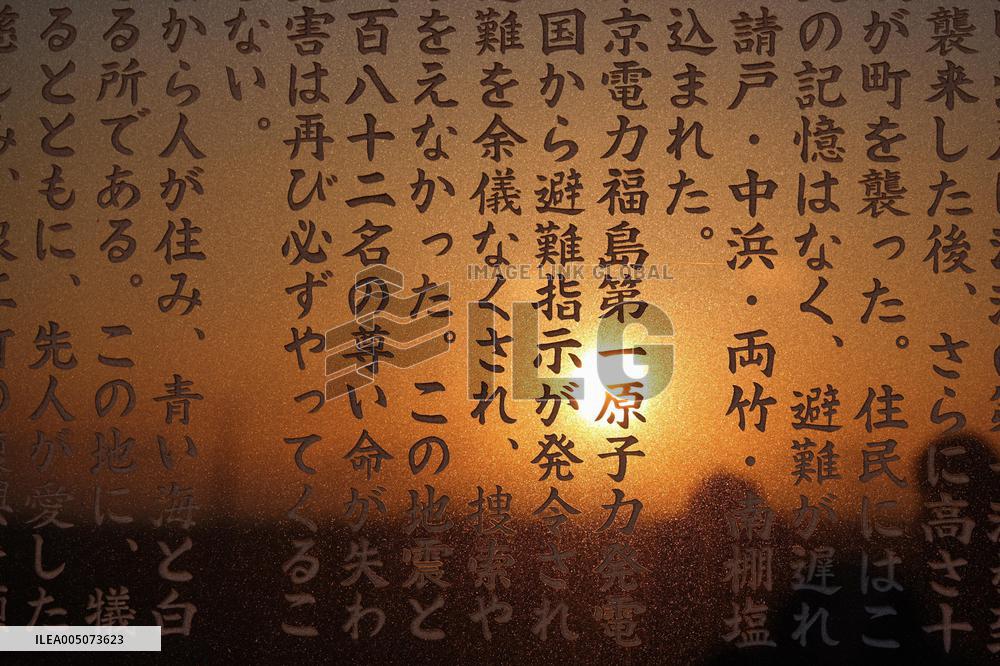 襲来した後、さらに高さ十
が町を襲った。住民にはこ
の記憶はなく、避難が遅れ
請戸・中浜・両竹・南棚塩
込まれた。
京電力福島第一原子力発電
国から避難指示が発令され
難を余儀なくされ、捜索や
をえなかった。この地震と
百八十二名の尊い命が失わ
害は再び必ずやってくるこ
ない。
から人が住み、青い海と白
る所である。この地に、犠
るとともに、先人が愛した
IMAGE LINK GLOBAL
ILG
ILEA005073623